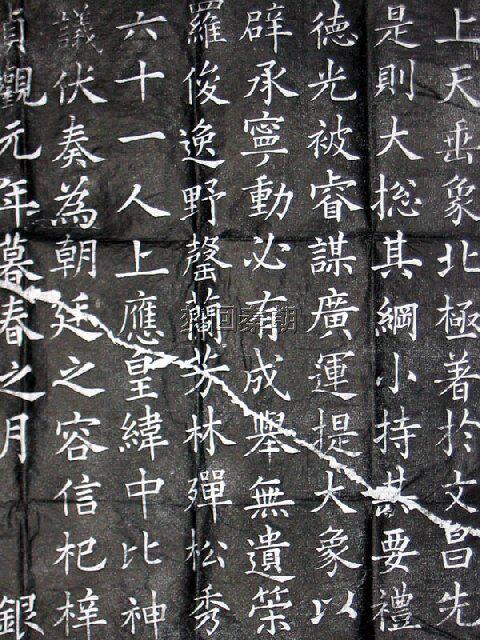 上天垂象北極著於文昌先
是則大揔其綱小持其要禮
徳光被睿謀廣運提大象以
辟承寧動必有成舉無遺筞
羅俊逸野罄蘭芳林殫松秀
六十一人上應皇緯中比神
議伏奏為朝廷之容信杞梓
貞觀元年暮春之月 銀
梦回秦朝